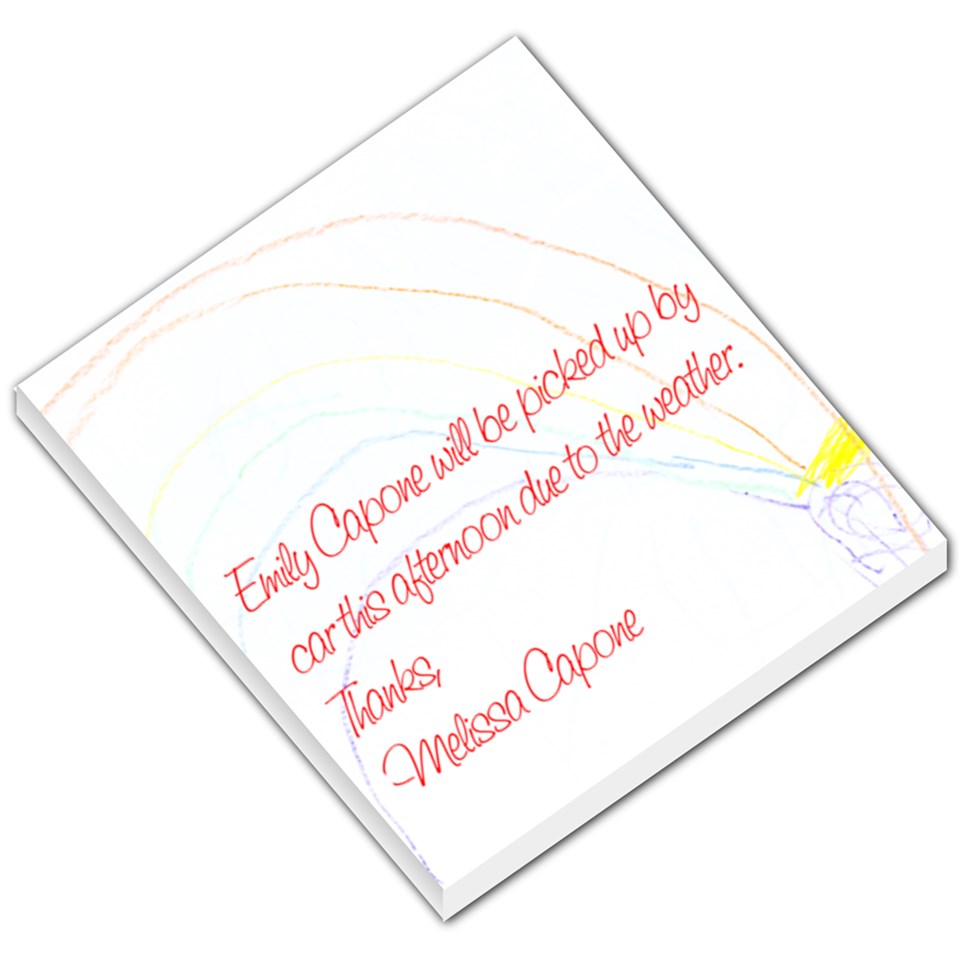 Emily Capone will be picked up by
car this afternoon due to the weather.
Thanks,
Melissa Capone